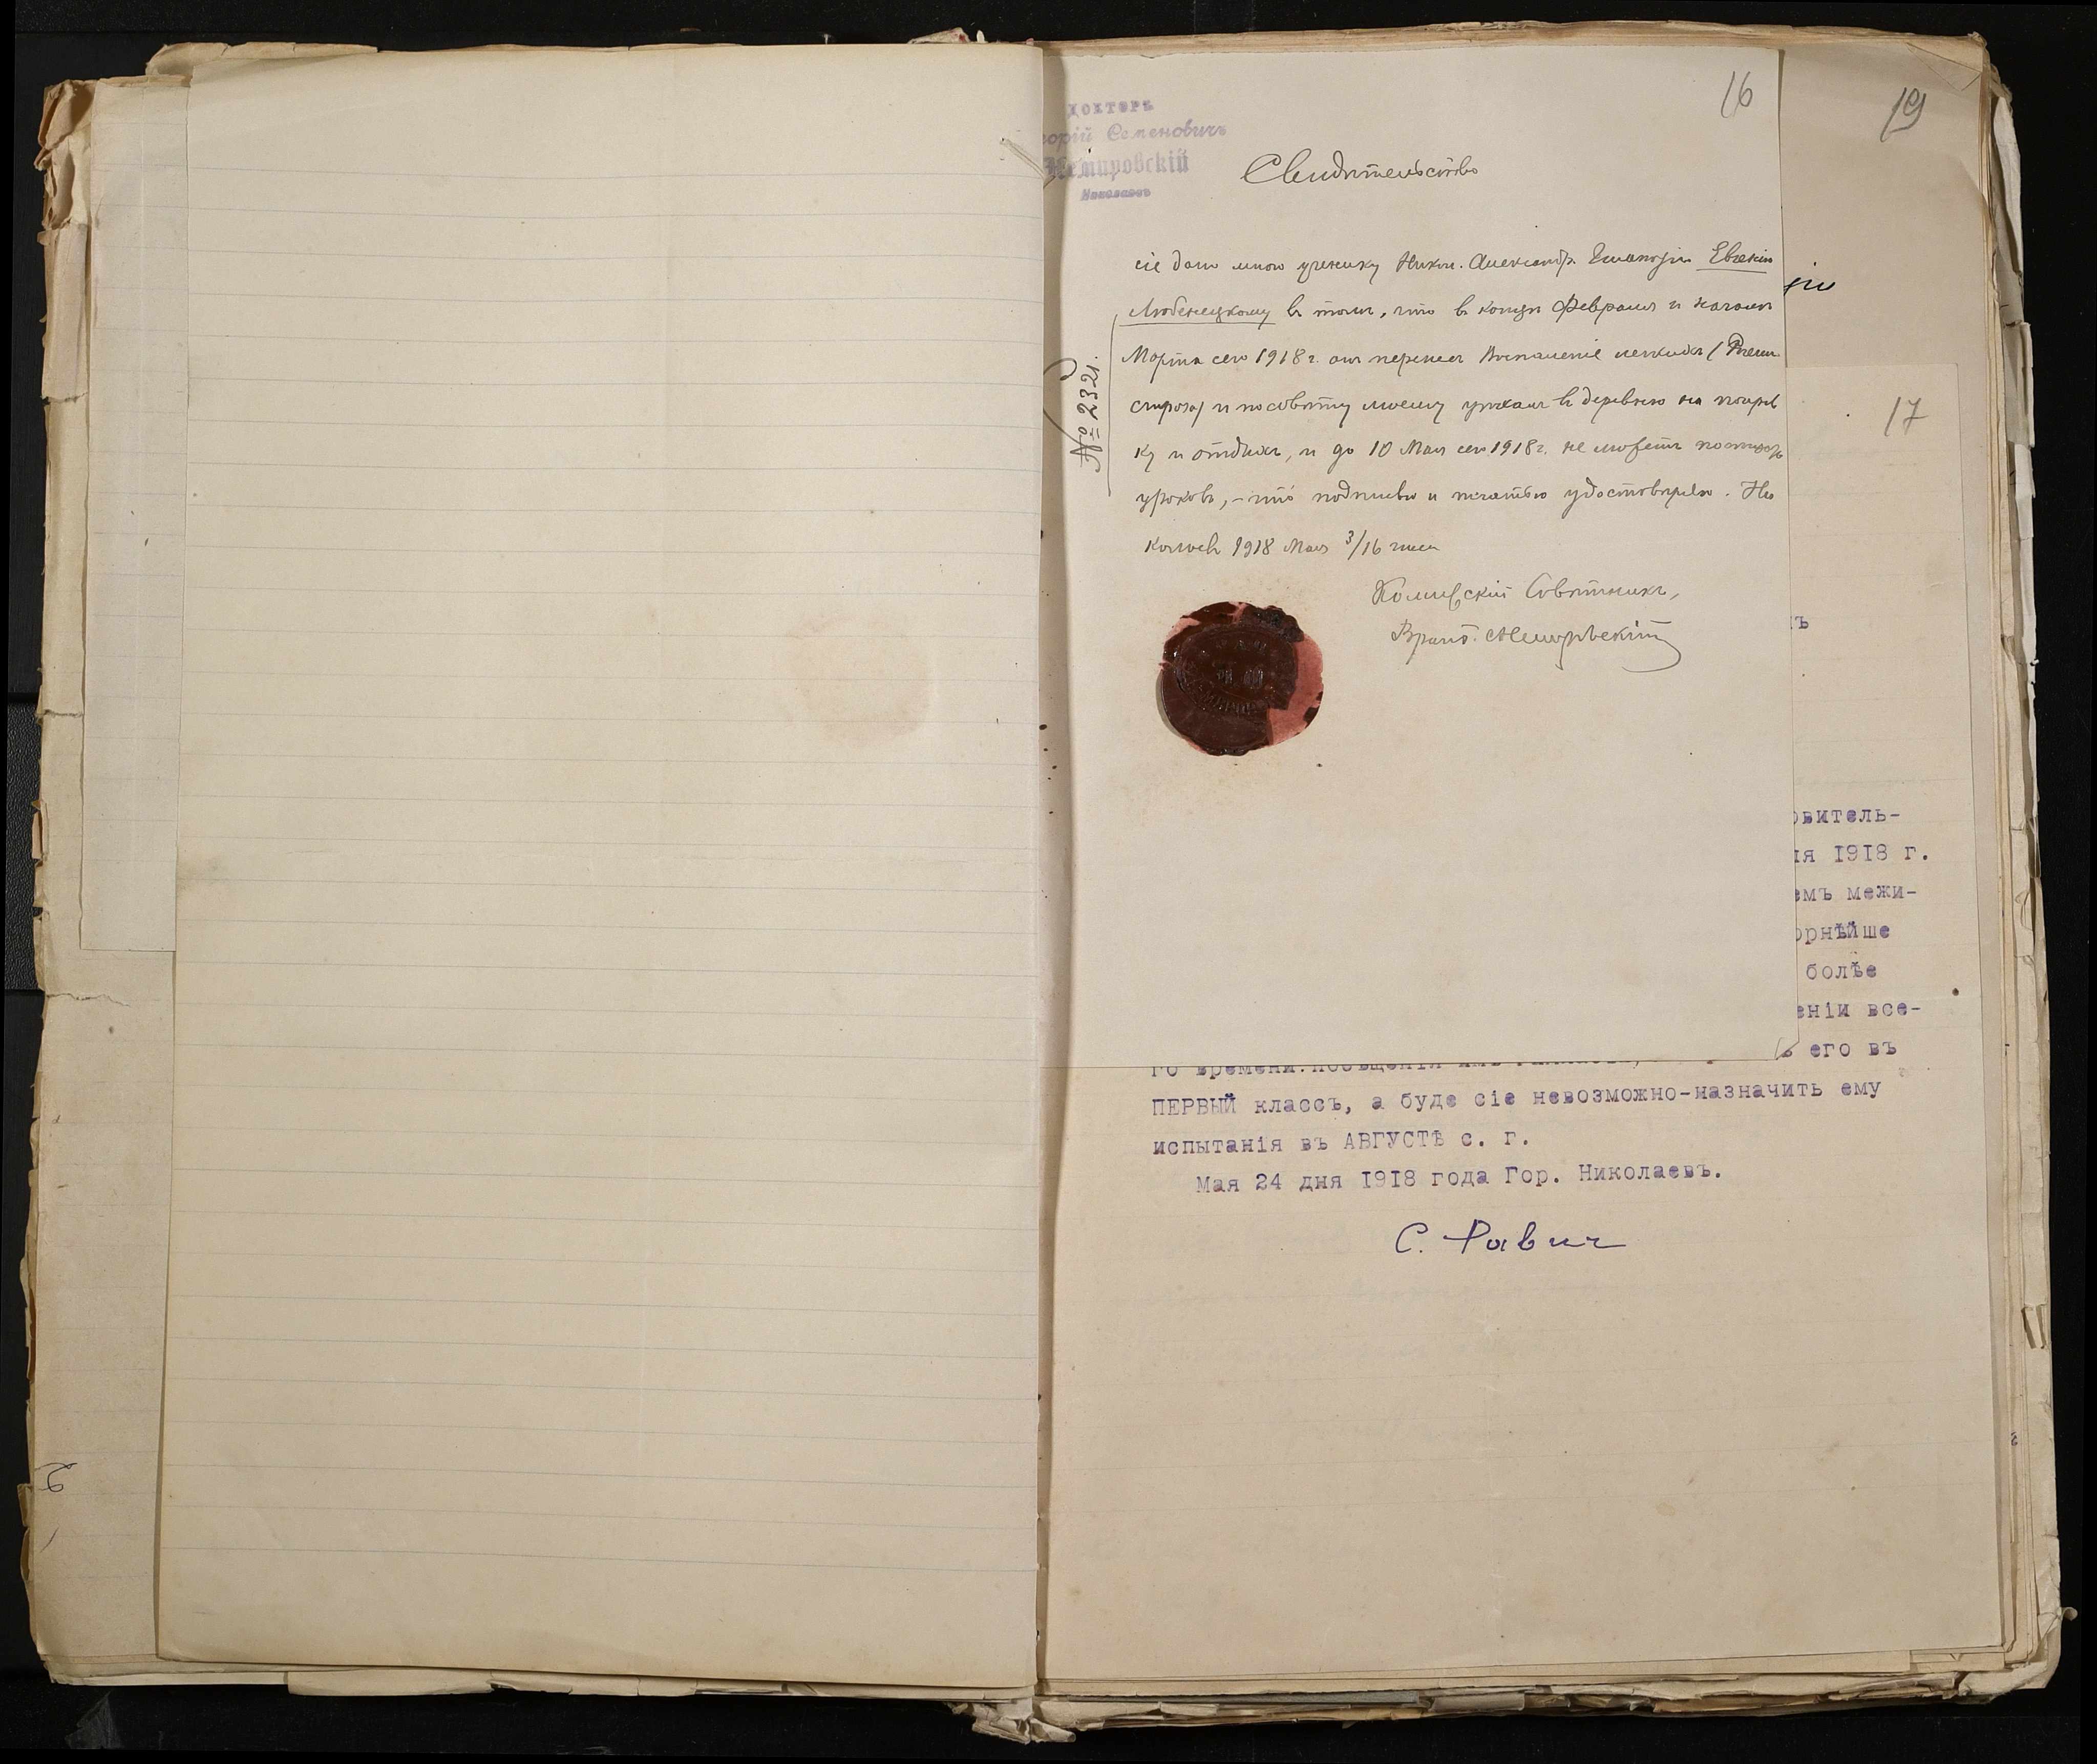 16
19
ДОКТЕРЪ
орій Семеновичъ
Немировскій
Николаевъ
Свидѣтельство
сіе дано мною ученику Никол. Александр. Гимназіи Евгенію
Любенецкому въ томъ, что въ концѣ Февраля и началѣ
Марта сего 1918 г. онъ перенесъ Воспаленіе легкихъ
и по совѣту моему уѣхалъ въ деревню на поправ
ку и отдыхъ, и до 10 Мая сего 1918 г. не можетъ посѣщать
уроковъ, - что подписью и печатью удостовѣряю. Ни
колаевъ 1918 Мая 3/16 дня
№ 2321.
Коллежскій Совѣтникъ,
Врачъ Немировскій
17
ъ
овитель-
ія 1918 г.
емъ межи-
орнѣйше
болѣе
еніи все-
его въ
го времени посѣщенія имъ
ПЕРВЫЙ классъ, а буде сіе невозможно-назначить ему
испытанія въ АВГУСТѢ с. г.
Мая 24 дня 1918 года Гор. Николаевъ.
С. Равич